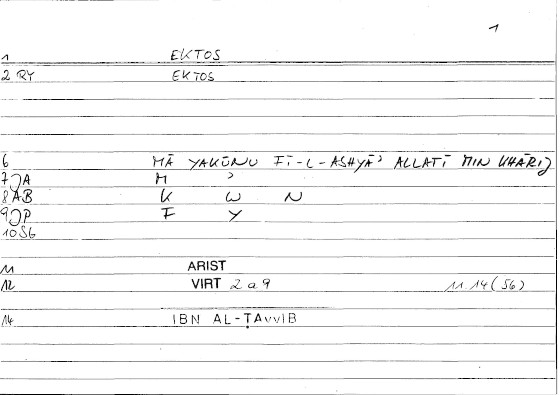 1
1 EKTOS
2 RY EKTOS
6 MĀ YAKŪNU FĪ-L-ASHYĀʾ ALLATĪ MIN KHĀRIJ
7 JA M ʾ
8 AB K W N
9 JP F Y
10 S6
11 ARIST
12 VIRT 2 a 9 11.14 (S6)
14 IBN AL-ṬAYYIB